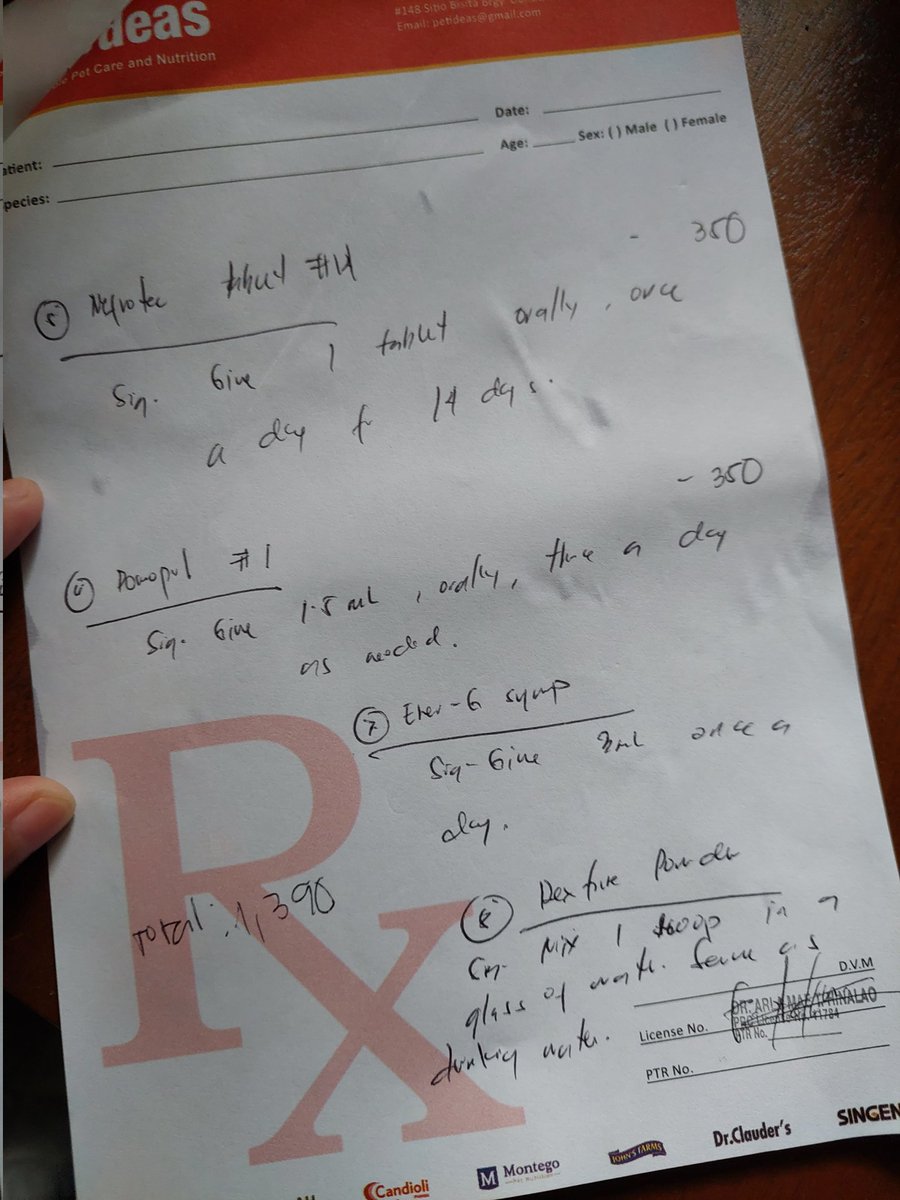 deas
Pet Care and Nutrition
#148 Sitio Bisita Brgy.
Email: petideas@gmail.com
Date:
atient:
Age: Sex: ( ) Male ( ) Female
pecies:
- 350
5 tablet #14
Sig. Give 1 tablet orally, once
a day for 14 days.
- 350
6 #1
Sig. Give 1.5 mL, orally, a day
as needed.
7 Ener-G syrup
Sig - Give 3mL once a
day.
8 Powder
Sig. Mix 1 scoop in a
glass of water. Serve as
drinking water.
Total: 1,390
Rx
D.V.M
License No.
PTR No.
Candioli
M Montego
JOHN'S FARMS
Dr.Clauder's
SINGEN